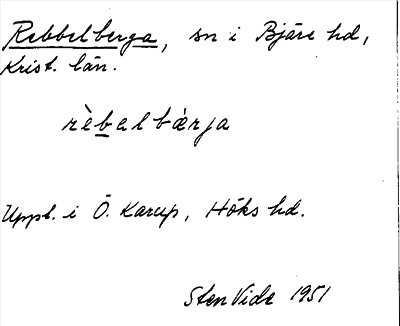 Rebbelberga, sn i Bjäre hd,
Krist. län.
rèbalbǽrja
Uppt. i Ö. Karup, Höks hd.
Sten Vide 1951